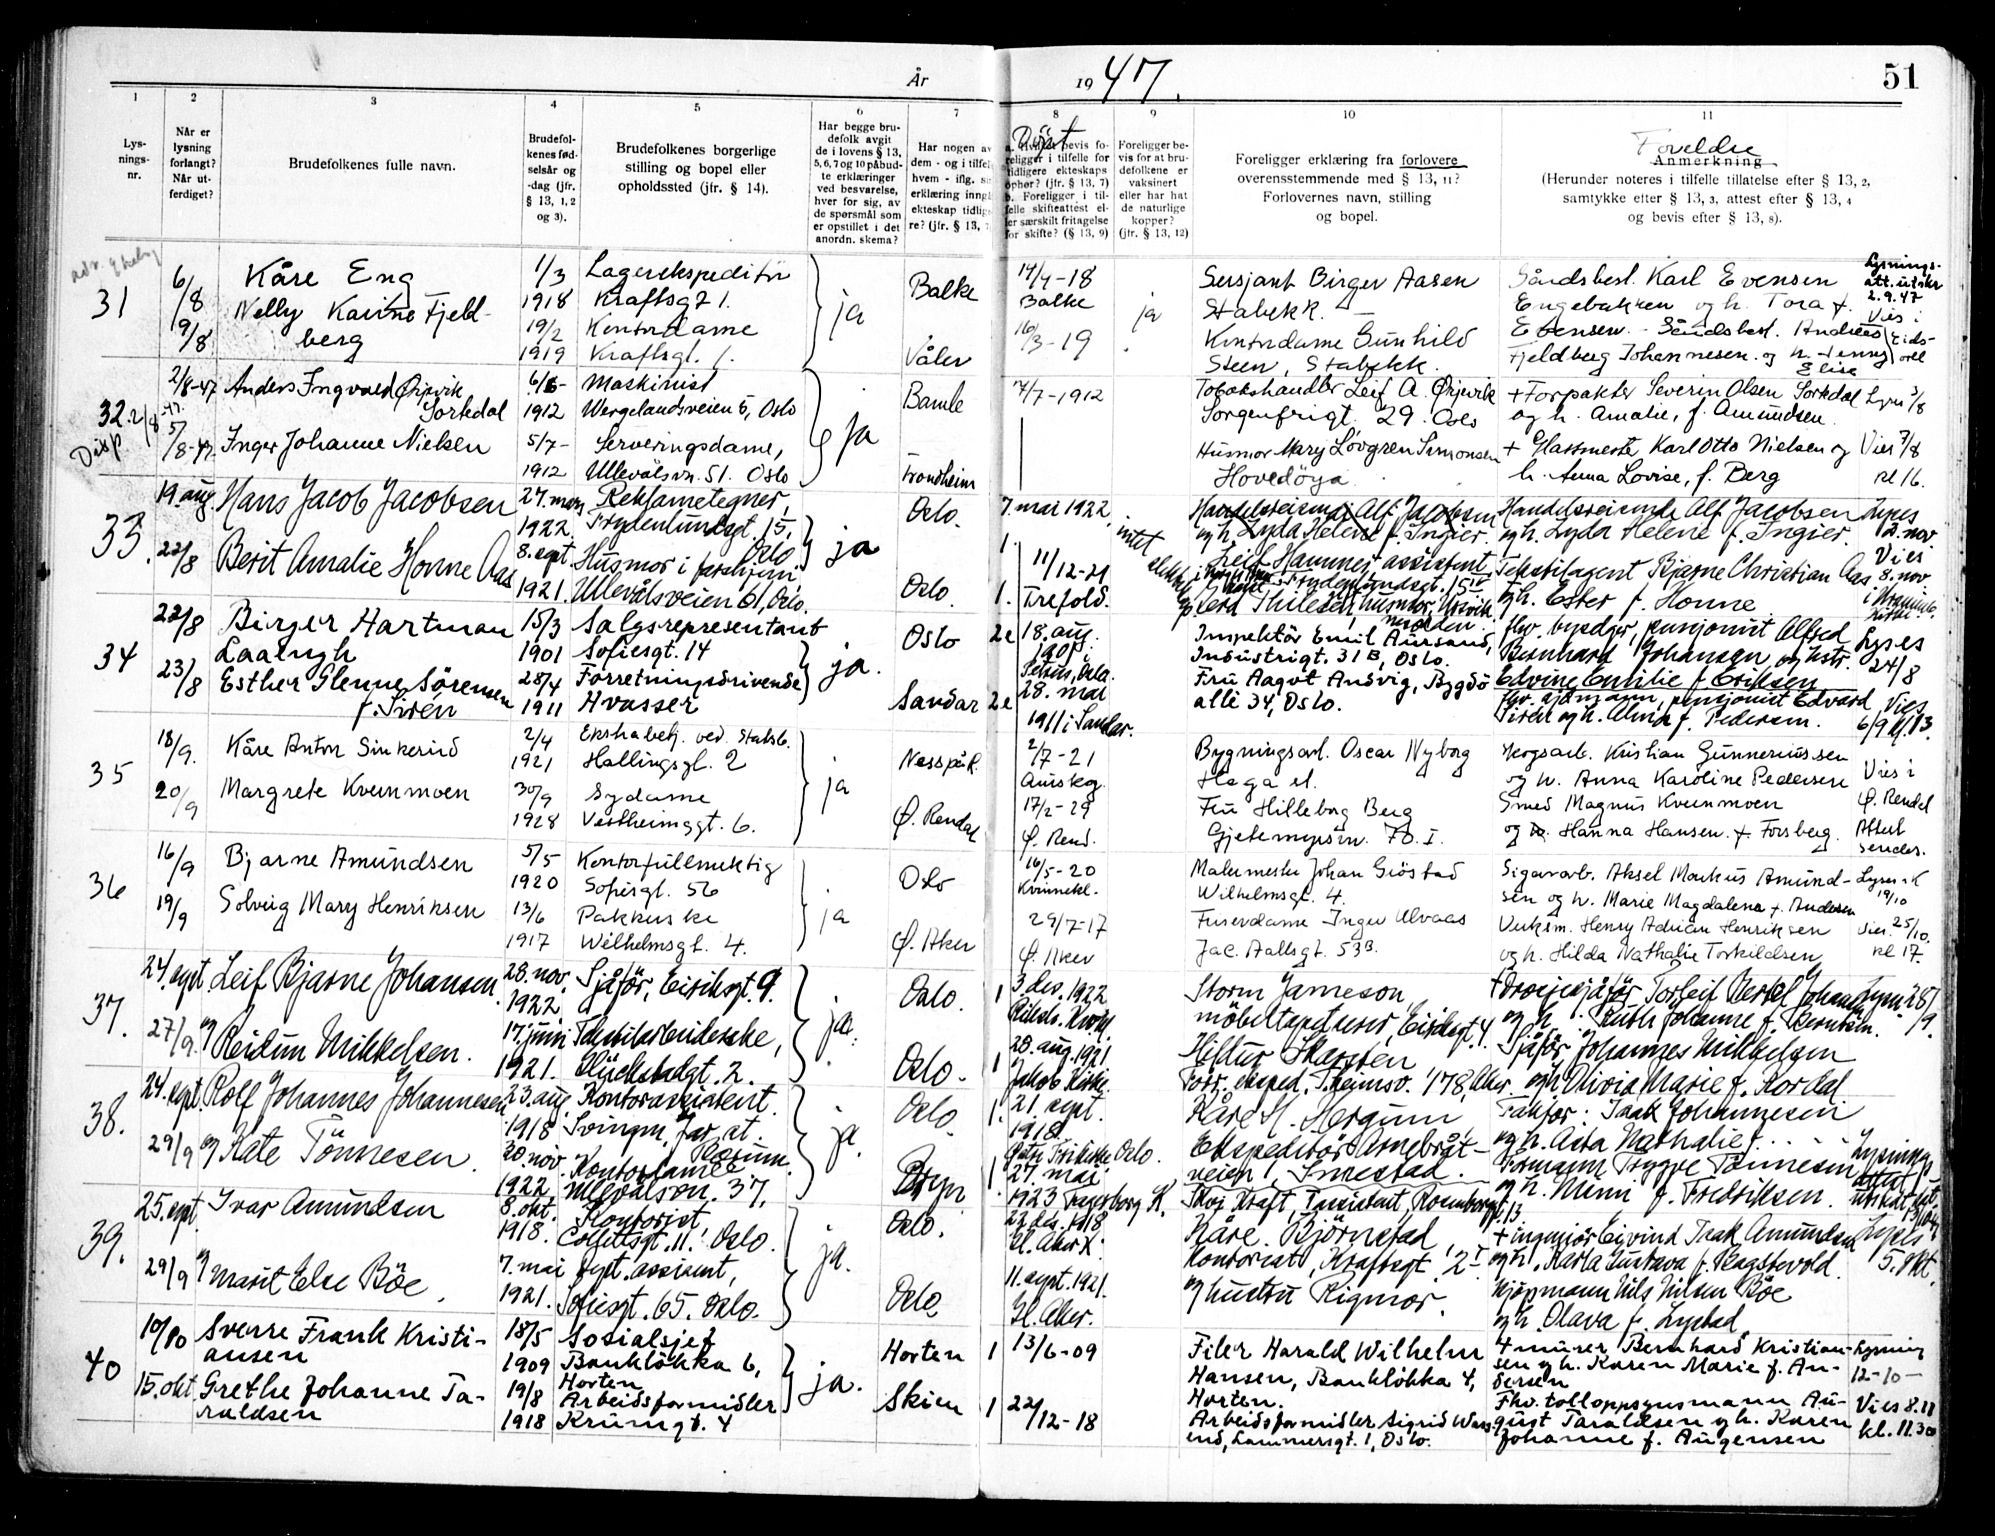 År
1947.
51
1
2
3
4
5
6
7
8
9
10
11
Lys-
nings-
nr.
Når er
lysning
forlangt?
Når ut-
ferdiget?
Brudefolkenes fulle navn.
Brudefol-
kenes fød-
selsår og
-dag (jfr.
§ 13, 1, 2
og 3).
Brudefolkenes borgerlige
stilling og bopel eller
opholdssted (jfr. § 14).
Har begge bru-
defolk avgit
de i lovens § 13,
5, 6, 7 og 10 påbud-
te erklæringer
ved besvarelse,
hver for sig, av
de spørsmål som
er opstillet i det
anordn. skema?
Har nogen av
dem - og i tilfel
hvem - iflg.
erklæring inng
ekteskap tidlig
re? (jfr. § 13, 7
Døpt
bevis fo-
religger i tilfelle for
tidligere ekteskaps
ophør? (jfr. § 13, 7)
b. Foreligger i til-
felle skifteattest el-
ler særskilt fritagelse
for skifte? (§ 13, 9)
Foreligger be-
vis for at bru-
defolkene er
vaksinert
eller har hat
de naturlige
kopper?
(jfr. § 13, 12)
Foreligger erklæring fra forlovere
overensstemmende med § 13, 11?
Forlovernes navn, stilling
og bopel.
Foreldre
Anmerkning
(Herunder noteres i tilfelle tillatelse efter § 13, 2,
samtykke efter § 13, 3, attest efter § 13, 4
og bevis efter § 13, 8).
31
6/8
9/8
Kåre Eng
Nelly Karine Fjeld-
berg
1/3
1918
19/2
1919
Lagerekspeditør
Kraftsgt 1.
Kontordame
Kraftsgt. 1.
ja
Balke
Våler
14/4-18
Balke
16/3-19
ja
Sersjant Birger Aasen
Stabekk.
Kontordame Gunhild
Steen, Stabekk.
Gårdsbest. Karl Evensen
Engebakken og h. Tora f.
Evensen. - Gårdsbest. Andreas
Fjeldberg Johannesen og h. Jenny
Elise
Lysnings-
att. utskr
2.9.47
Vies i
Eids-
voll
32.
Disp.
2/8-47
5/8-47
Anders Ingvald Ørjevik
Sorkdal
Inger Johanne Nielsen
6/6-
1912
5/7-
1912
Maskinist
Wergelandsveien 5, Oslo
Serveringsdame,
Ullevålsvn. 51. Oslo
ja
Bamle
Trondheim
7/7-1912
Tobakshandler Leif A. Ørjevik
Sorgenfrigt. 29. Oslo
Husmor Mary Løvgren Simonsen
Hovedøya
+ Forpakter Severin Olsen Sorkdal
og h. Amalie, f. Amundsen.
+ Glassmester Karl Otto Nielsen og
h. Anna Lovise, f. Berg
Lyses 3/8
Vies 7/8
kl 16.
33.
19. aug
22/8
Hans Jacob Jacobsen
Berit Amalie Honne Aas
27. mars
1922.
8. sept.
1921.
Reklametegner,
Frydenlundsgt. 15,
Oslo
Husmor i forehjem,
Ullevålsveien 61, Oslo.
ja
Oslo.
Oslo.
7. mai 1922.
1.
11/12-21
1. Trefold.
Handelsreisende Alf Jacobsen
og h. Lyda Helene f. Ingier.
Leif Hammer, assistent
Frydenlundsgt. 15
Handelsreisende Alf Jacobsen
og h. Lyda Helene f. Ingier.
Tekstilagent Bjarne Christian Aas
og h. Ester f. Honne
Lyses
2. nov
Vies
8. nov
34
22/8
23/8
Birger Hartman
Laangh
Esther Glenne Sörensen
f. Sirén
15/3
1901
28/4
1911
Salgsrepresentant
Sofiesgt. 14
Forretningsdrivende
Hvasser
ja.
Oslo
Sandar
2e
2e
18. aug.
1901 i
Petrus, Oslo.
28. mai
1911 i Sandar.
Inspektör Emil Aursand,
Industrigt. 31 B, Oslo.
Fru Aagot Andvig, Bygdö
allé 34, Oslo.
fhv. byselger, pensjonist Alfred
Bernhard Johansen og hstr.
Edvine Emilie f. Eriksen
fhv. sjömann, pensjonist Edvard
Sirén og h. Alma f. Pedersen.
Lyses
24/8
Vies
6/9 kl. 13.
35
18/9.
20/9
Kåre Anton Sinkerud
Margrete Kvernmoen
2/4
1921
30/9
1928
Ekstrabetj. ved Statsb.
Hallingsgt. 2
Sydame
Vestheimsgt. 6.
ja
Nesspåk.
Ø. Rendal
2/7-21
Aurskog.
17/2-29
Ø. Rend.
Bygningsarb. Oscar Nyborg
Haga st.
Fru Hilleborg Berg
Gjetemyrsvn. 70. I.
Skogsarb. Kristian Gunneriussen
og h. Anna Karoline Pedersen
Smed Magnus Kvernmoen
og h. Hanna Hansen f. Forsberg.
Vies i
Ø. Rendal
Attest
sendes.
36
16/9
19/9
Bjarne Amundsen
Solveig Mary Henriksen
5/5
1920
13/6
1917
Kontorfullmektig
Sofiesgt. 56
Pakkerske
Wilhelmsgt. 4.
ja
Oslo
Ø. Aker
16/5-20
Kvinnekl.
29/7-17
Ø. Aker
Malermester Johan Gröstad
Wilhelmsgt. 4.
Friserdame Inger Alvaas
Jac. Aallsgt. 53 B.
Sigararb. Aksel Markus Amund-
sen og h. Marie Magdalena f. Andersen
Verksm. Henry Adrian Henriksen
og h. Hilda Nathalie Torkildsen
Lyses K
19/10
Vies 25/10.
kl 17.
37.
24. sept.
27/9.
Leif Bjarne Johansen
og
Reidun Mikkelsen.
28. nov.
1922.
17. juni
1921.
Sjåför, Eiriksgt. 9.
Tekstilarbeiderske,
Glückstadgt. 2.
ja.
Oslo.
Oslo.
1
1
3. des. 1922
28. aug. 1921
Jakob Kirke.
Storm Jameson,
möbeltapetserer, Eiriksgt. 4.
Hildur Skarsten
Forr. eksped. Trheimsv. 178, Aker.
+ Drosjesjåför Torleif Bertel Johansen
og h. Ruth Johanne f. Berntsen.
Sjåför Johannes Mikkelsen
og h. Olivia Marie f. Kordal.
Lyses 28/9.
38.
24. sept.
29/9
Rolf Johannes Johannesen
og Kate Tönnesen.
23. aug.
1918
20. nov.
1922
Kontorassistent.
Svingen, Jar at.
Bærum.
Kontordame
Ullevålsvn. 37.
ja.
Oslo.
Bryn
1.
1
21. sept.
1918.
27. mai
1923 Fagerborg K.
Kåre H. Hergum
Ekspeditör, Arnebråt-
veien 1, Smestad.
Skoj Kraft, Assistent, Rosenborggt. 13
Falkför. Isak Johannesen
og h. Asta Nathalie f. . . . . .
Formann Trygve Tönnesen
og h. Mimi f. Fredriksen.
Lysnings
attest
utskrevet,
39.
25. sept.
29/9
Ivar Amundsen
og
Marit Else Böe.
8. okt.
1918.
7. mai
1921.
Kontorist,
Collettsgt. 11. Oslo.
sept. assistent,
Sofiesgt. 65. Oslo.
ja.
Oslo.
Oslo.
22. des. 1918
Gl. Aker K.
11. sept. 1921.
Gl. Aker.
Kåre. Björnstad,
Kontorist, Kraftsgt. 2 I
og hustru Rigmor.
+ ingeniör Eyvind Isak Amundsen
og h. Karla Gustava f. Ragstevold.
Kjöpmann Nils Nilsen Böe
og h. Olava f. Lystad
Lyses
5. okt.
40
10/10
15. okt.
Sverre Frank Kristi-
ansen
Grethe Johanne Ta-
raldsen
18/5
1909
19/8
1918
Sosialsjef
Banklökka 6,
Horten
Arbeidsformidler
Krumgt. 4
ja.
Horten
Skien
1
1
13/6-09
22/12-18
Filer Harald Wilhelm
Hansen, Banklökka 4,
Horten.
Arbeidsformidler Sigrid Wars-
end, Lammersgt. 1, Oslo.
+ murer Bernhard Kristian-
sen og h. Karen Marie f. An-
dersen
Fhv. tolloppsynsmann Au-
gust Taraldsen og h. Karen
Johanne f. Augensen
Lysning
12-10-
Vies 8.11
kl. 11.30